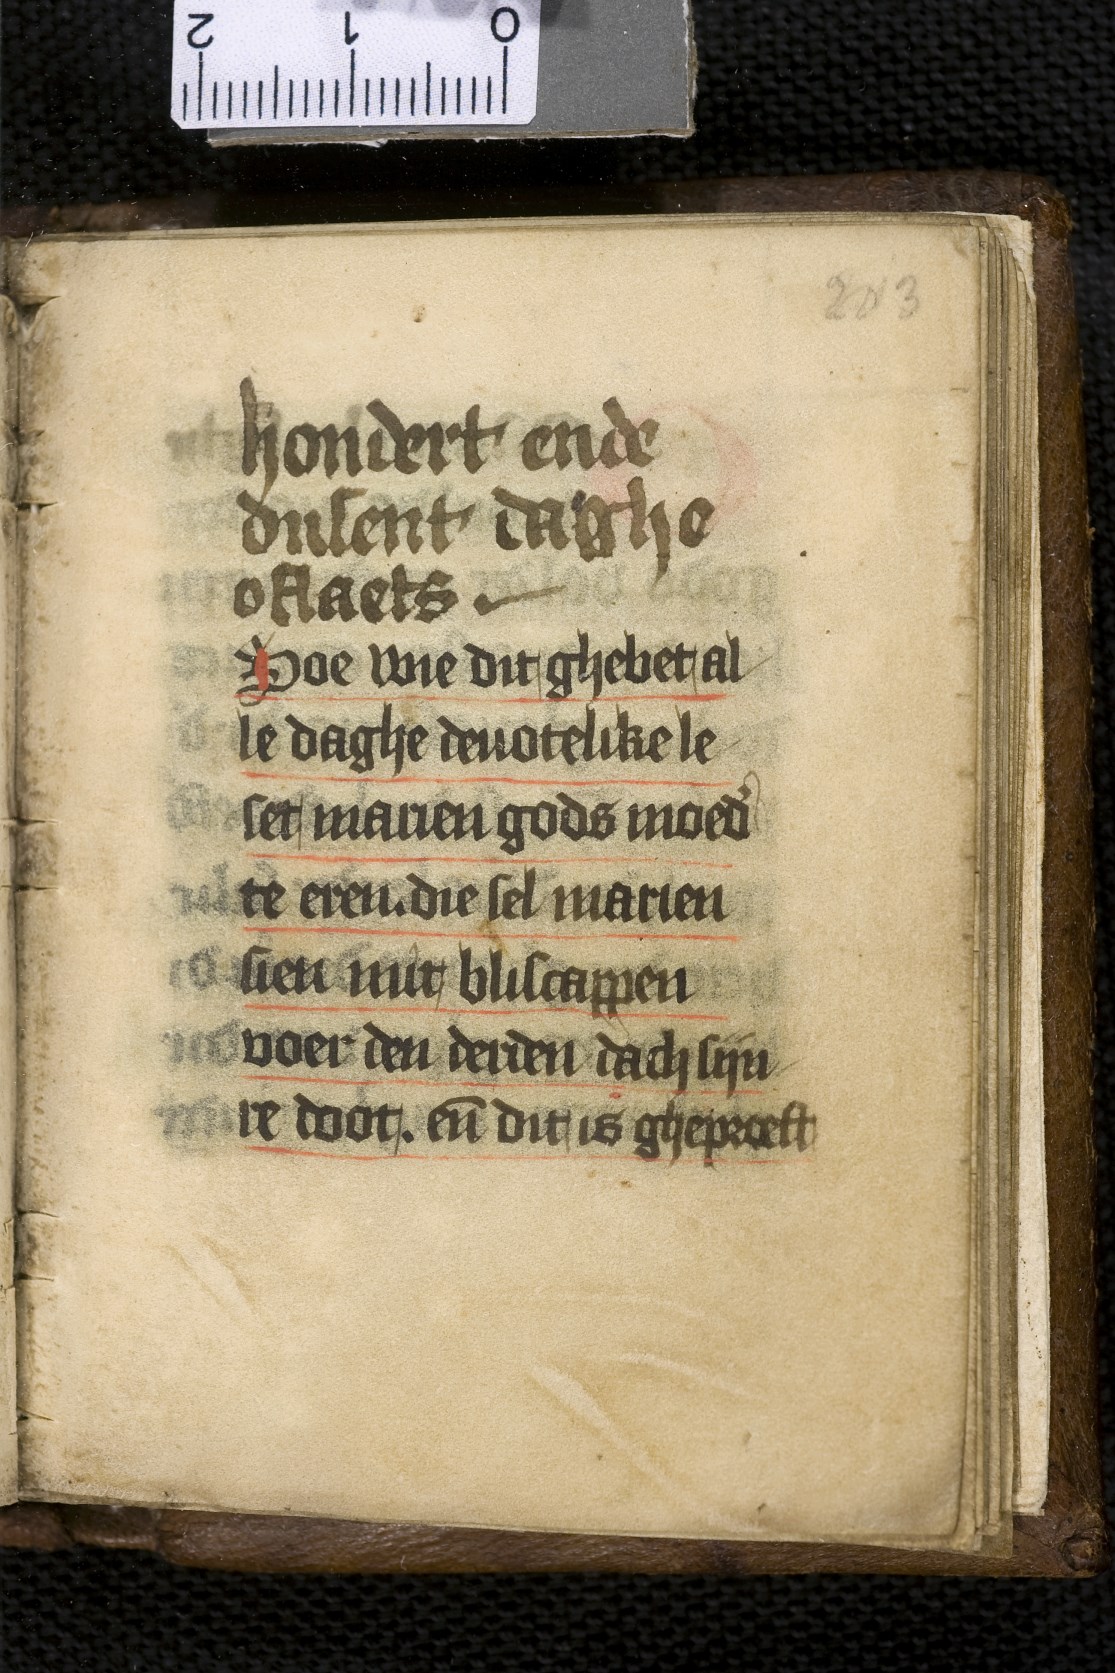 2 1 0
hondert ende
dusent daghe
oflaets
Soe wie dit ghebet al
le daghe deuotelike le
set marien gods moed'
te eren. die sel marien
sien mit bliscappen
voer den derden dach sijn
re doot. en̄ dit is gheproeft